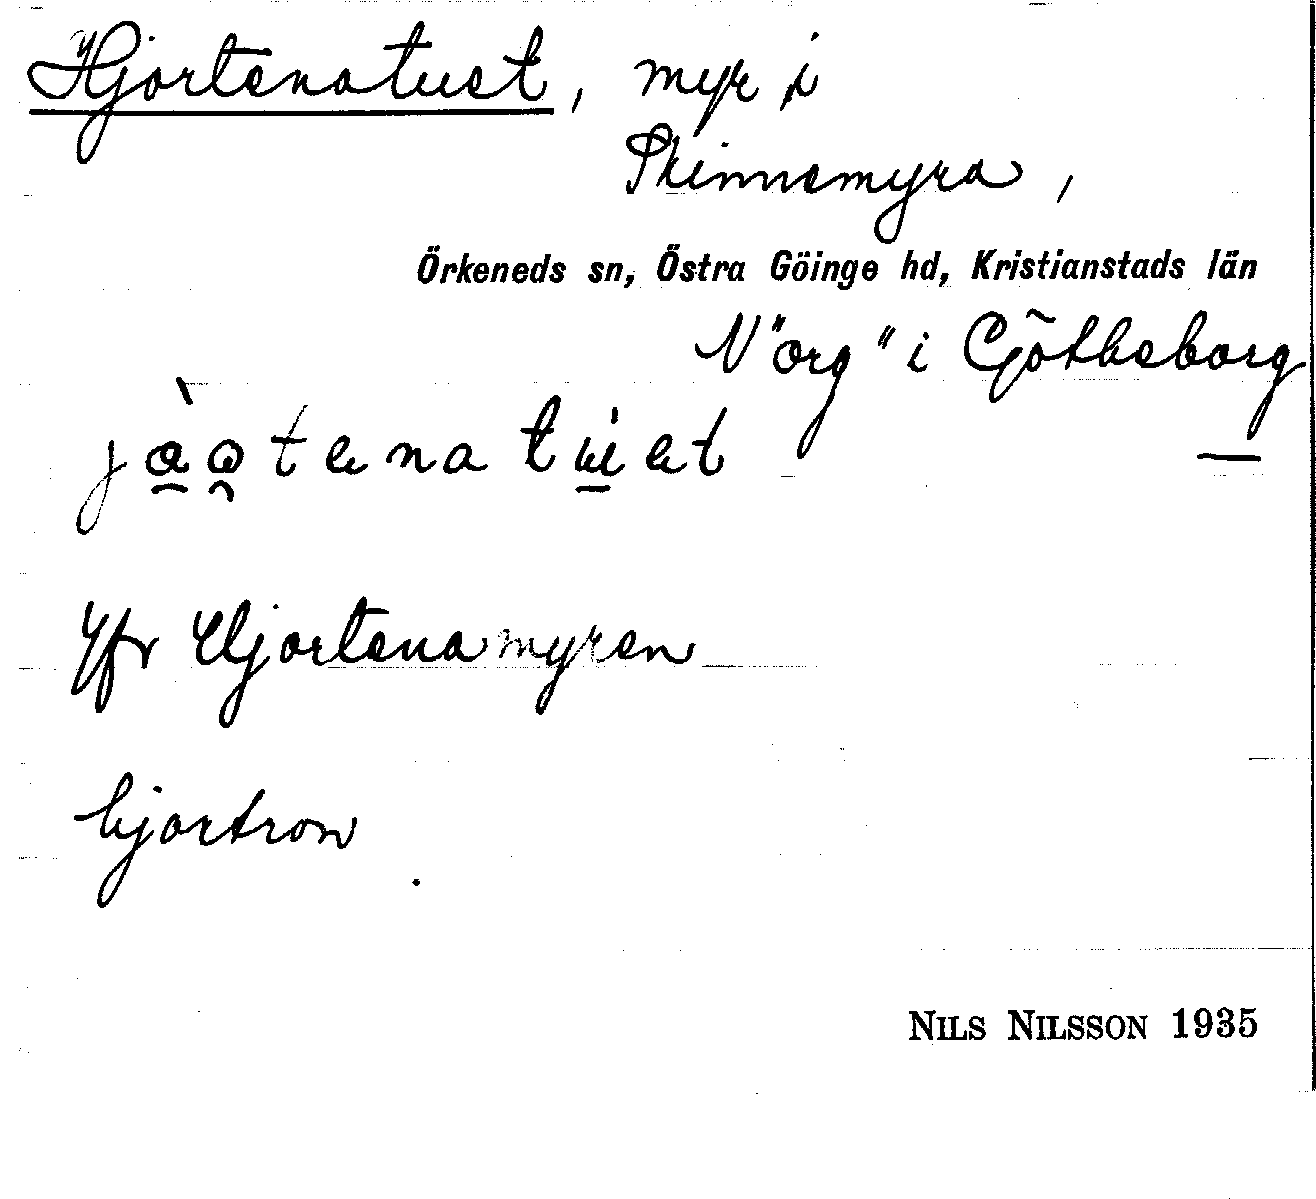 Hjortenatuet, myr i
Skinnemyra,
Örkeneds sn, Östra Göinge hd, Kristianstads län
N "org" i Götheborg
Jfr Hjortenamyren
hjortron
NILS NILSSON 1935